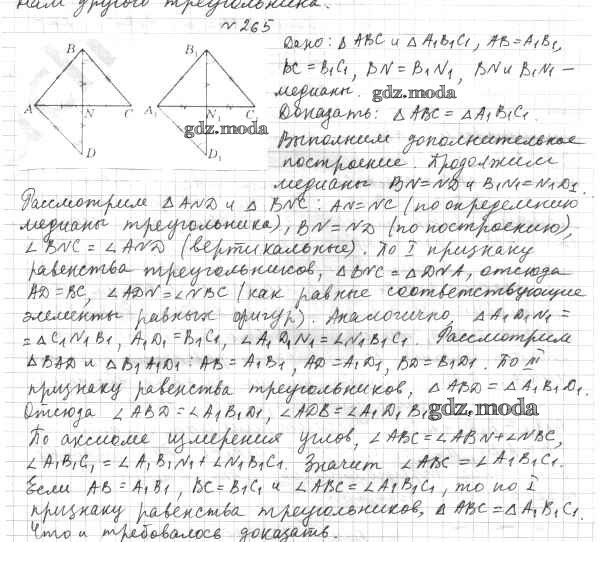 нам другого треугольника.
№ 265
Дано: △ ABC и △ A1B1C1, AB=A1B1,
BC=B1C1, BN=B1N1, BN и B1N1 –
медианы. gdz.moda
Доказать: △ ABC = △ A1B1C1.
Выполним дополнительное
построение. Продолжим
медианы BN=ND и B1N1=N1D1.
B
A
N
C
D
B1
A1
N1
C1
gdz.moda
D1
Рассмотрим △ AND и △ BNC: AN=NC (по определению
медианы треугольника), BN=ND (по построению),
∠ BNC = ∠ AND (вертикальные). По I признаку
равенства треугольников, △BNC = △DNA, отсюда
AD=BC, ∠ADN=∠NBC (как равные соответствующие
элементы равных фигур). Аналогично, △ A1D1N1 =
= △C1N1B1, A1D1=B1C1, ∠A1D1N1=∠N1B1C1. Рассмотрим
△BAD и △B1A1D1: AB=A1B1, AD=A1D1, BD=B1D1. По III
признаку равенства треугольников, △ABD=△A1B1D1.
Отсюда ∠ABD=∠A1B1D1, ∠ADB=∠A1D1B1 gdz.moda
По аксиоме измерения углов, ∠ABC=∠ABN+∠NBC,
∠A1B1C1=∠A1B1N1+∠N1B1C1. Значит ∠ABC=∠A1B1C1.
Если AB=A1B1, BC=B1C1 и ∠ABC=∠A1B1C1, то по I
признаку равенства треугольников, △ABC=△A1B1C1.
Что и требовалось доказать.